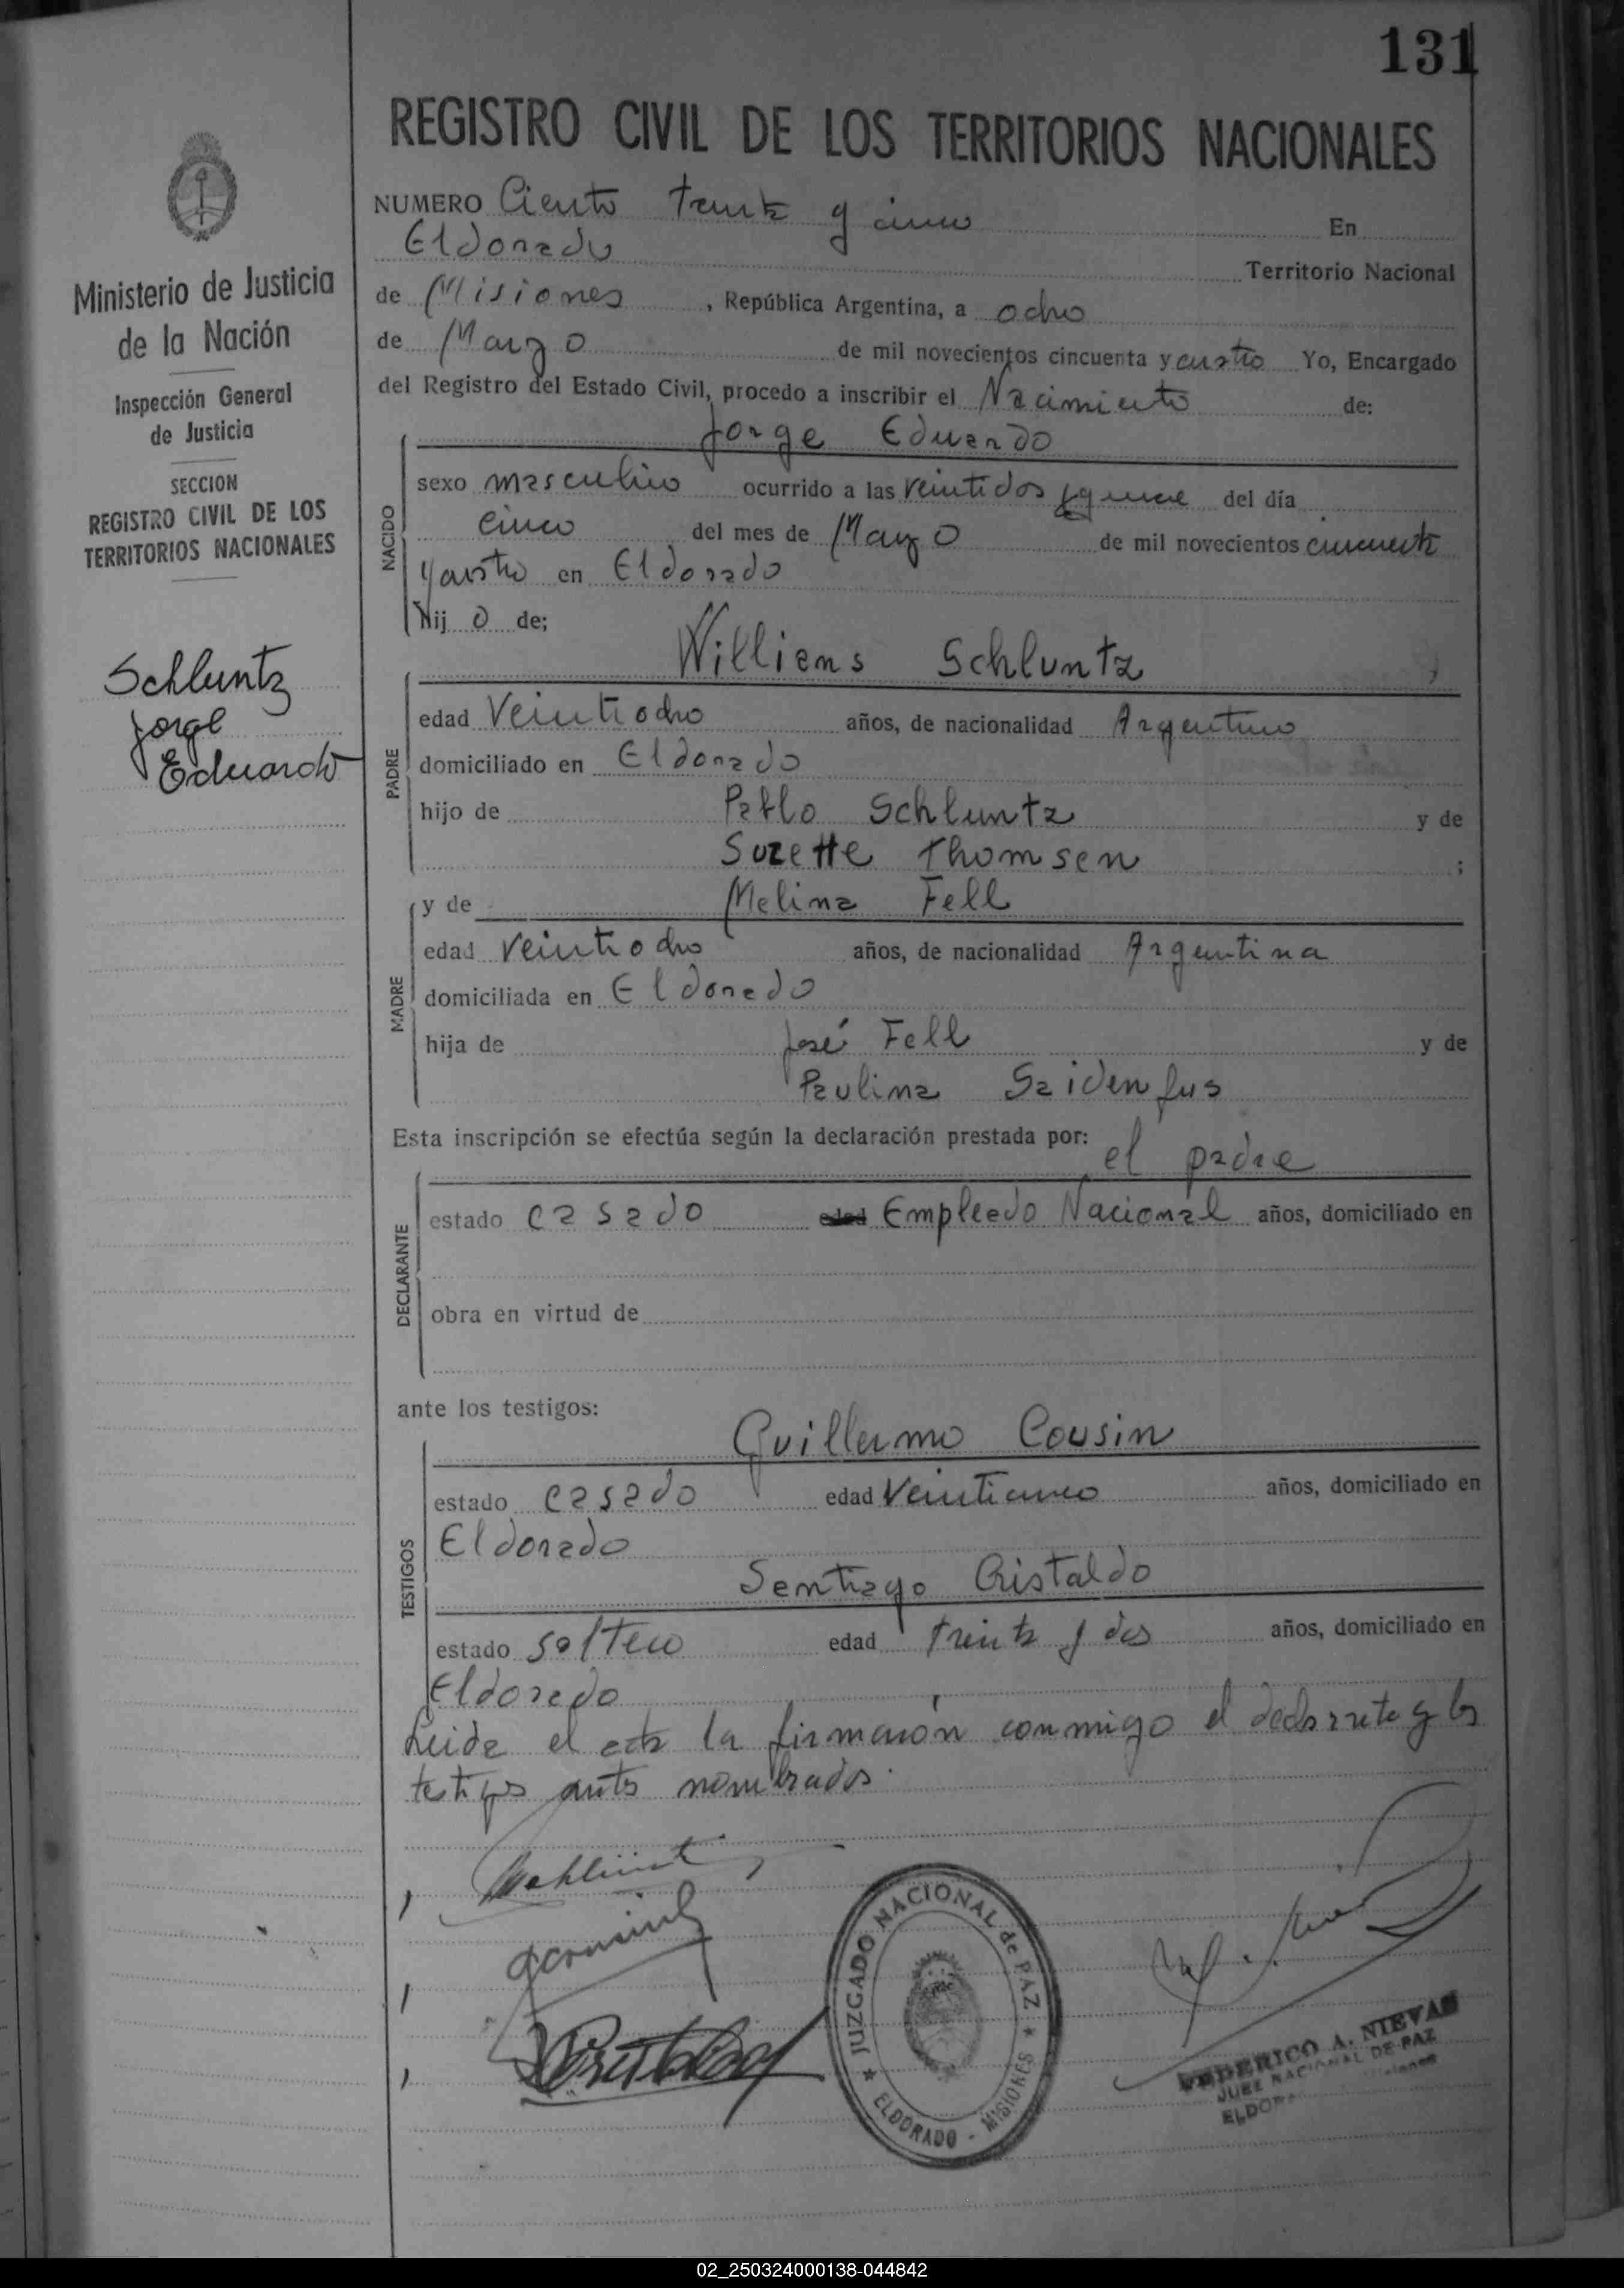 131
REGISTRO CIVIL DE LOS TERRITORIOS NACIONALES
Ministerio de Justicia
de la Nación
Inspección General
de Justicia
SECCION
REGISTRO CIVIL DE LOS
TERRITORIOS NACIONALES
Schluntz
Jorge
Eduardo
NUMERO Ciento treinta y cinco En
Eldorado Territorio Nacional
de Misiones, República Argentina, a ocho
de Marzo de mil novecientos cincuenta y cuatro Yo, Encargado
del Registro del Estado Civil, procedo a inscribir el Nacimiento de:
Jorge Eduardo
NACIDO
sexo masculino ocurrido a las veintidos y quince del día
cinco del mes de Marzo de mil novecientos cincuenta
y cuatro en Eldorado
hij o de;
Williams Schluntz
PADRE
edad Veintiocho años, de nacionalidad Argentino
domiciliado en Eldorado
hijo de Pablo Schluntz y de
Suzette Thomsen ;
MADRE
y de Melina Fell
edad veintiocho años, de nacionalidad Argentina
domiciliada en Eldorado
hija de José Fell y de
Paulina Saidenfus
Esta inscripción se efectúa según la declaración prestada por: el padre
DECLARANTE
estado casado edad Empleado Nacional años, domiciliado en
obra en virtud de
ante los testigos:
TESTIGOS
Guillermo Cousin
estado casado edad Veinticinco años, domiciliado en
Eldorado
Santiago Cristaldo
estado soltero edad treinta y dos años, domiciliado en
Eldorado
Leida el acta la firmaron conmigo el declarante y los
testigos antes nombrados.
JUZGADO NACIONAL de PAZ
ELDORADO - MISIONES
FEDERICO A. NIEVAS
JUEZ NACIONAL DE PAZ
02_250324000138-044842